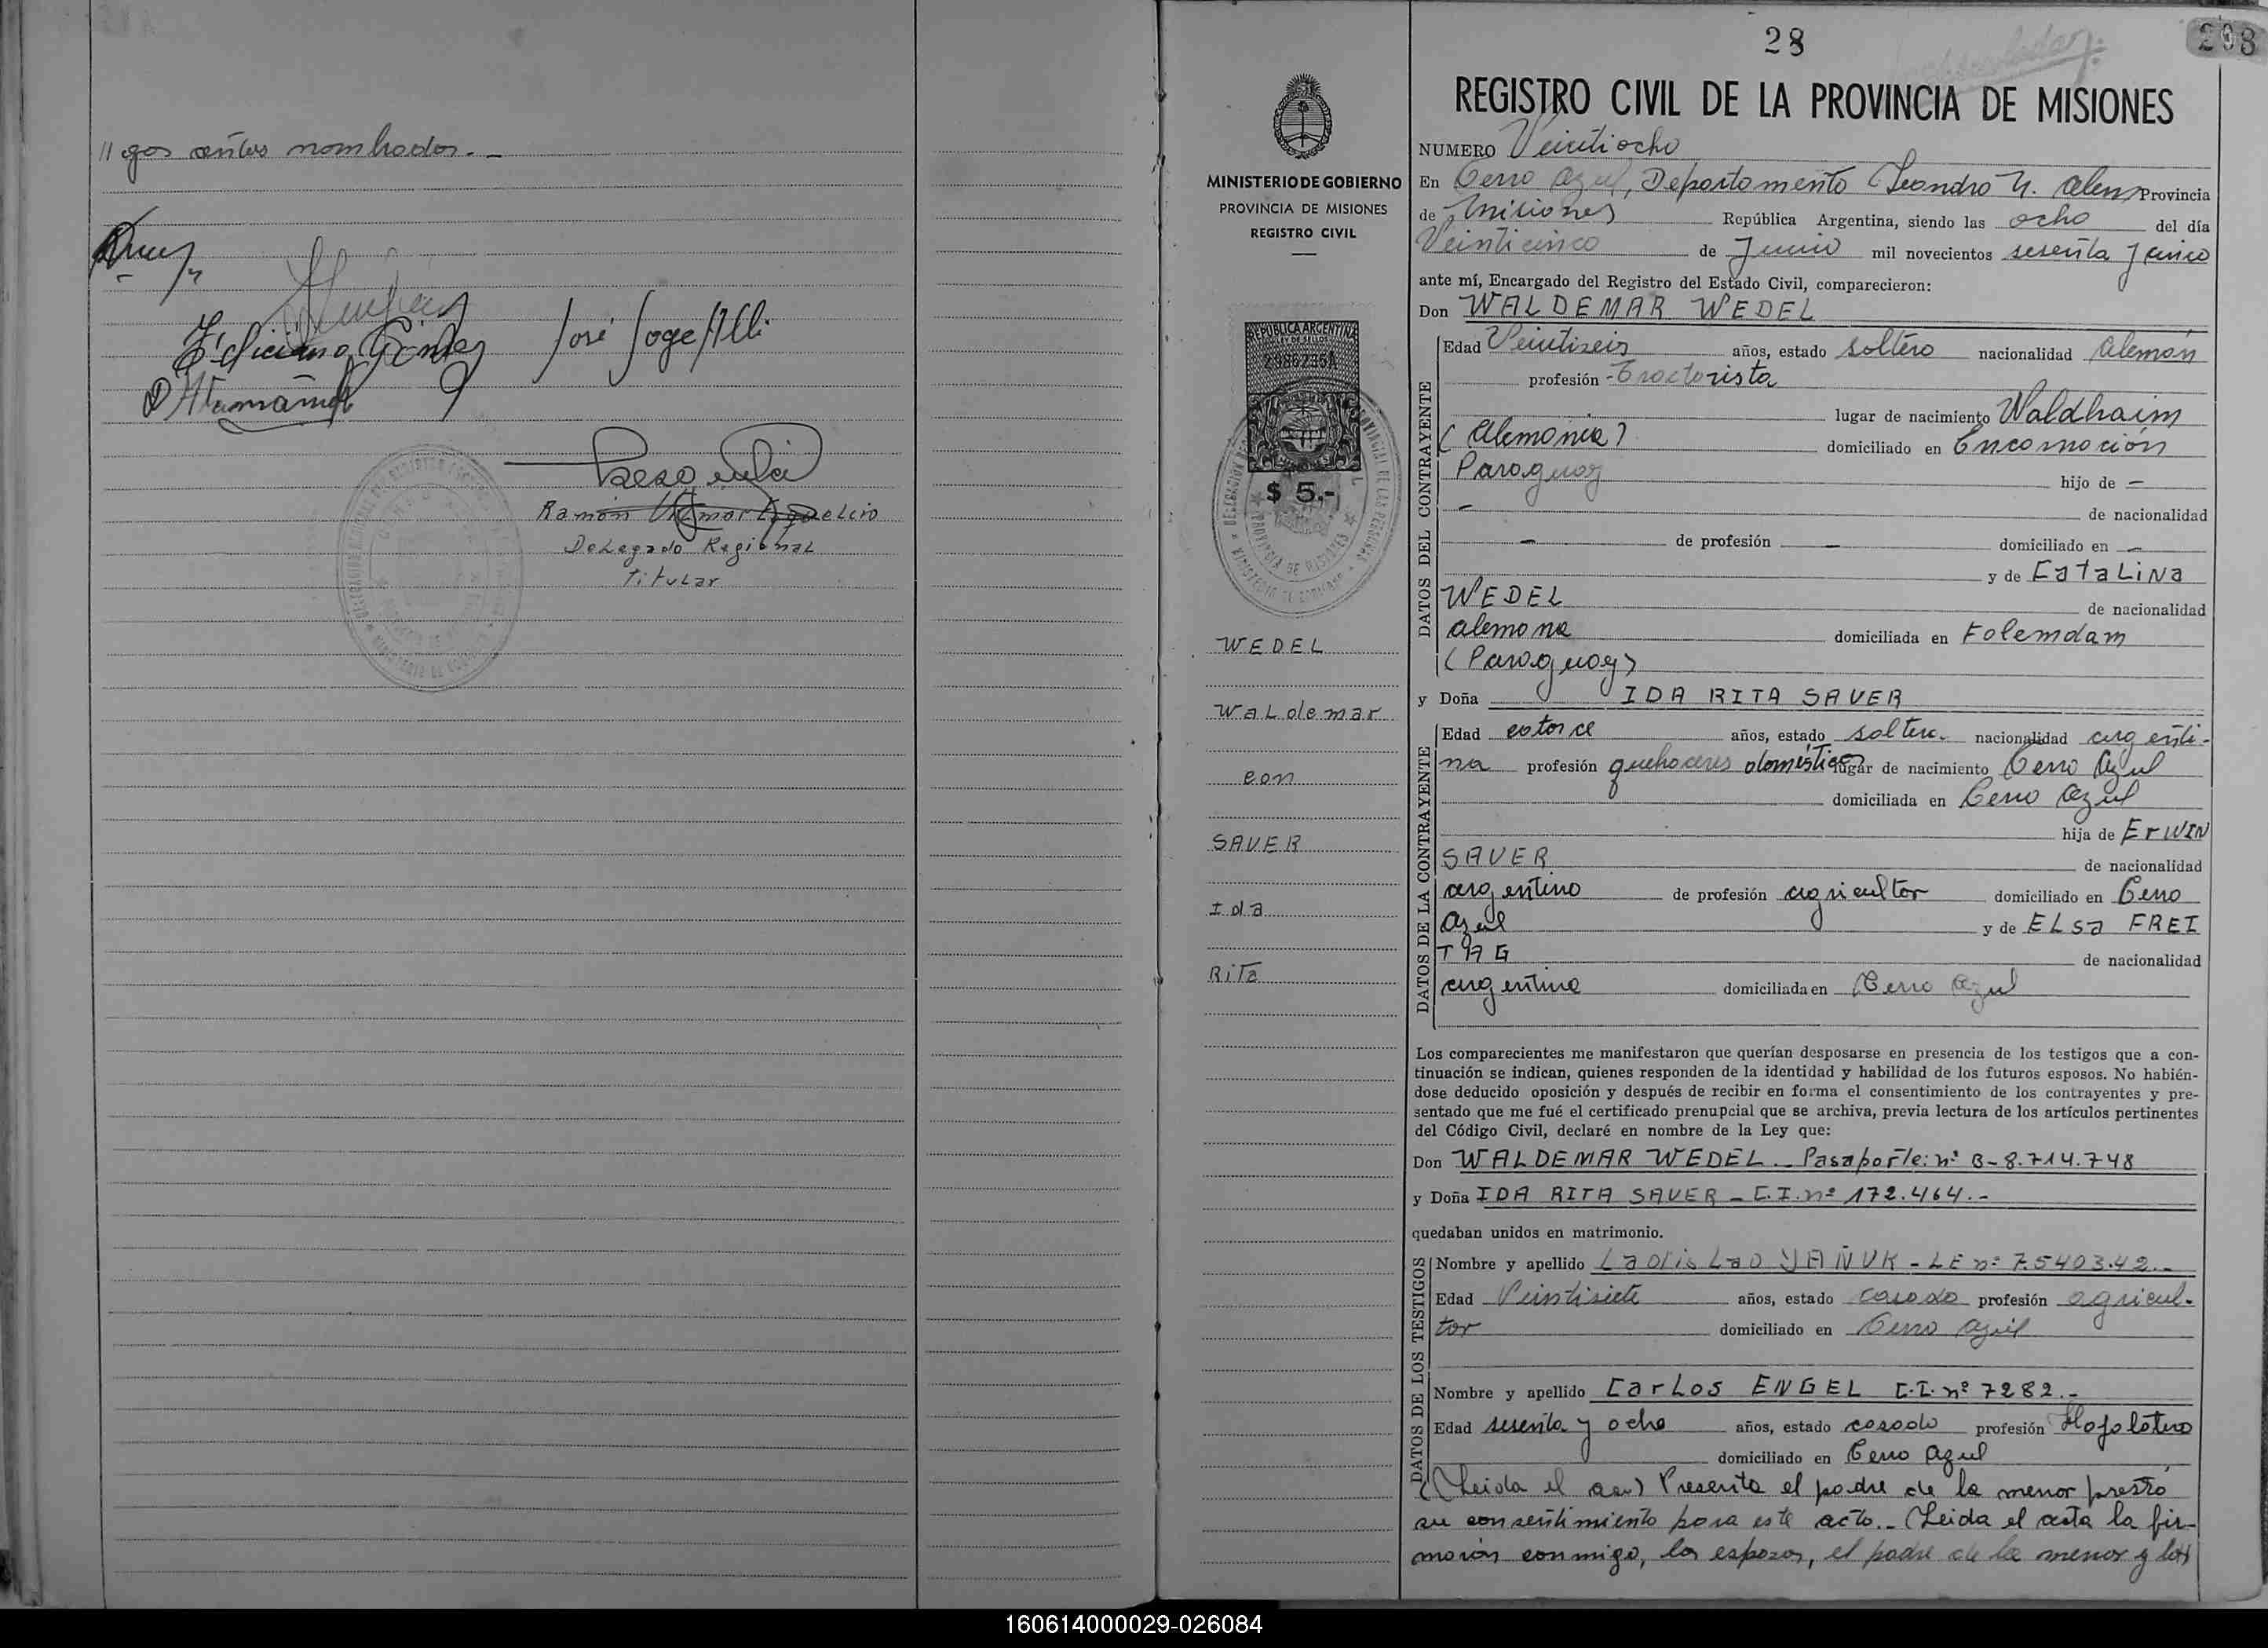 // gos antes nombrados. -
Feliciano Gomez José Joge Alli
Ramón
Delegado Regional
Titular
28
298
REGISTRO CIVIL DE LA PROVINCIA DE MISIONES
MINISTERIO DE GOBIERNO
PROVINCIA DE MISIONES
REGISTRO CIVIL
REPUBLICA ARGENTINA
LEY DE SELLOS
2986235A
$ 5.-
WEDEL
Waldemar
con
SAUER
Ida
Rita
NUMERO Veintiocho
En Cerro Azul, Departamento Leandro N. Alem Provincia
de Misiones República Argentina, siendo las ocho del día
Veinticinco de Junio mil novecientos sesenta y cinco
ante mí, Encargado del Registro del Estado Civil, comparecieron:
Don WALDEMAR WEDEL
DATOS DEL CONTRAYENTE
Edad Veintiseis años, estado soltero nacionalidad Alemán
profesión - Tractorista
lugar de nacimiento Waldhaim
(Alemania) domiciliado en Encarnación
Paraguay hijo de —
— de nacionalidad
— de profesión — domiciliado en —
y de CataLiNa
WEDEL de nacionalidad
alemana domiciliada en Folemdam
(Paraguay)
y Doña IDA RITA SAUER
DATOS DE LA CONTRAYENTE
Edad catorce años, estado soltera nacionalidad argenti-
na profesión quehaceres domésticos lugar de nacimiento Cerro Azul
domiciliada en Cerro Azul
hija de ErWIN
SAUER de nacionalidad
argentino de profesión agricultor domiciliado en Cerro
Azul y de ELsa FREI
TAG de nacionalidad
argentina domiciliada en Cerro Azul
Los comparecientes me manifestaron que querían desposarse en presencia de los testigos que a con-
tinuación se indican, quienes responden de la identidad y habilidad de los futuros esposos. No habién-
dose deducido oposición y después de recibir en forma el consentimiento de los contrayentes y pre-
sentado que me fué el certificado prenupcial que se archiva, previa lectura de los artículos pertinentes
del Código Civil, declaré en nombre de la Ley que:
Don WALDEMAR WEDEL - Pasaporte: nº B-8.714.748
y Doña IDA RITA SAUER - C.I. nº 172.464.-
quedaban unidos en matrimonio.
DATOS DE LOS TESTIGOS
Nombre y apellido LadisLao YAÑUK - LE nº 7.540342.-
Edad Veintisiete años, estado casado profesión agricul-
tor domiciliado en Cerro Azul
Nombre y apellido CarLos ENGEL C.I. nº 7282.-
Edad sesenta y ocho años, estado casado profesión Hojalatero
domiciliado en Cerro Azul
(Leida el ac) Presente el padre de la menor prestó
su consentimiento para este acto.- Leida el acta la fir-
maron conmigo, los esposos, el padre de la menor y los
160614000029-026084